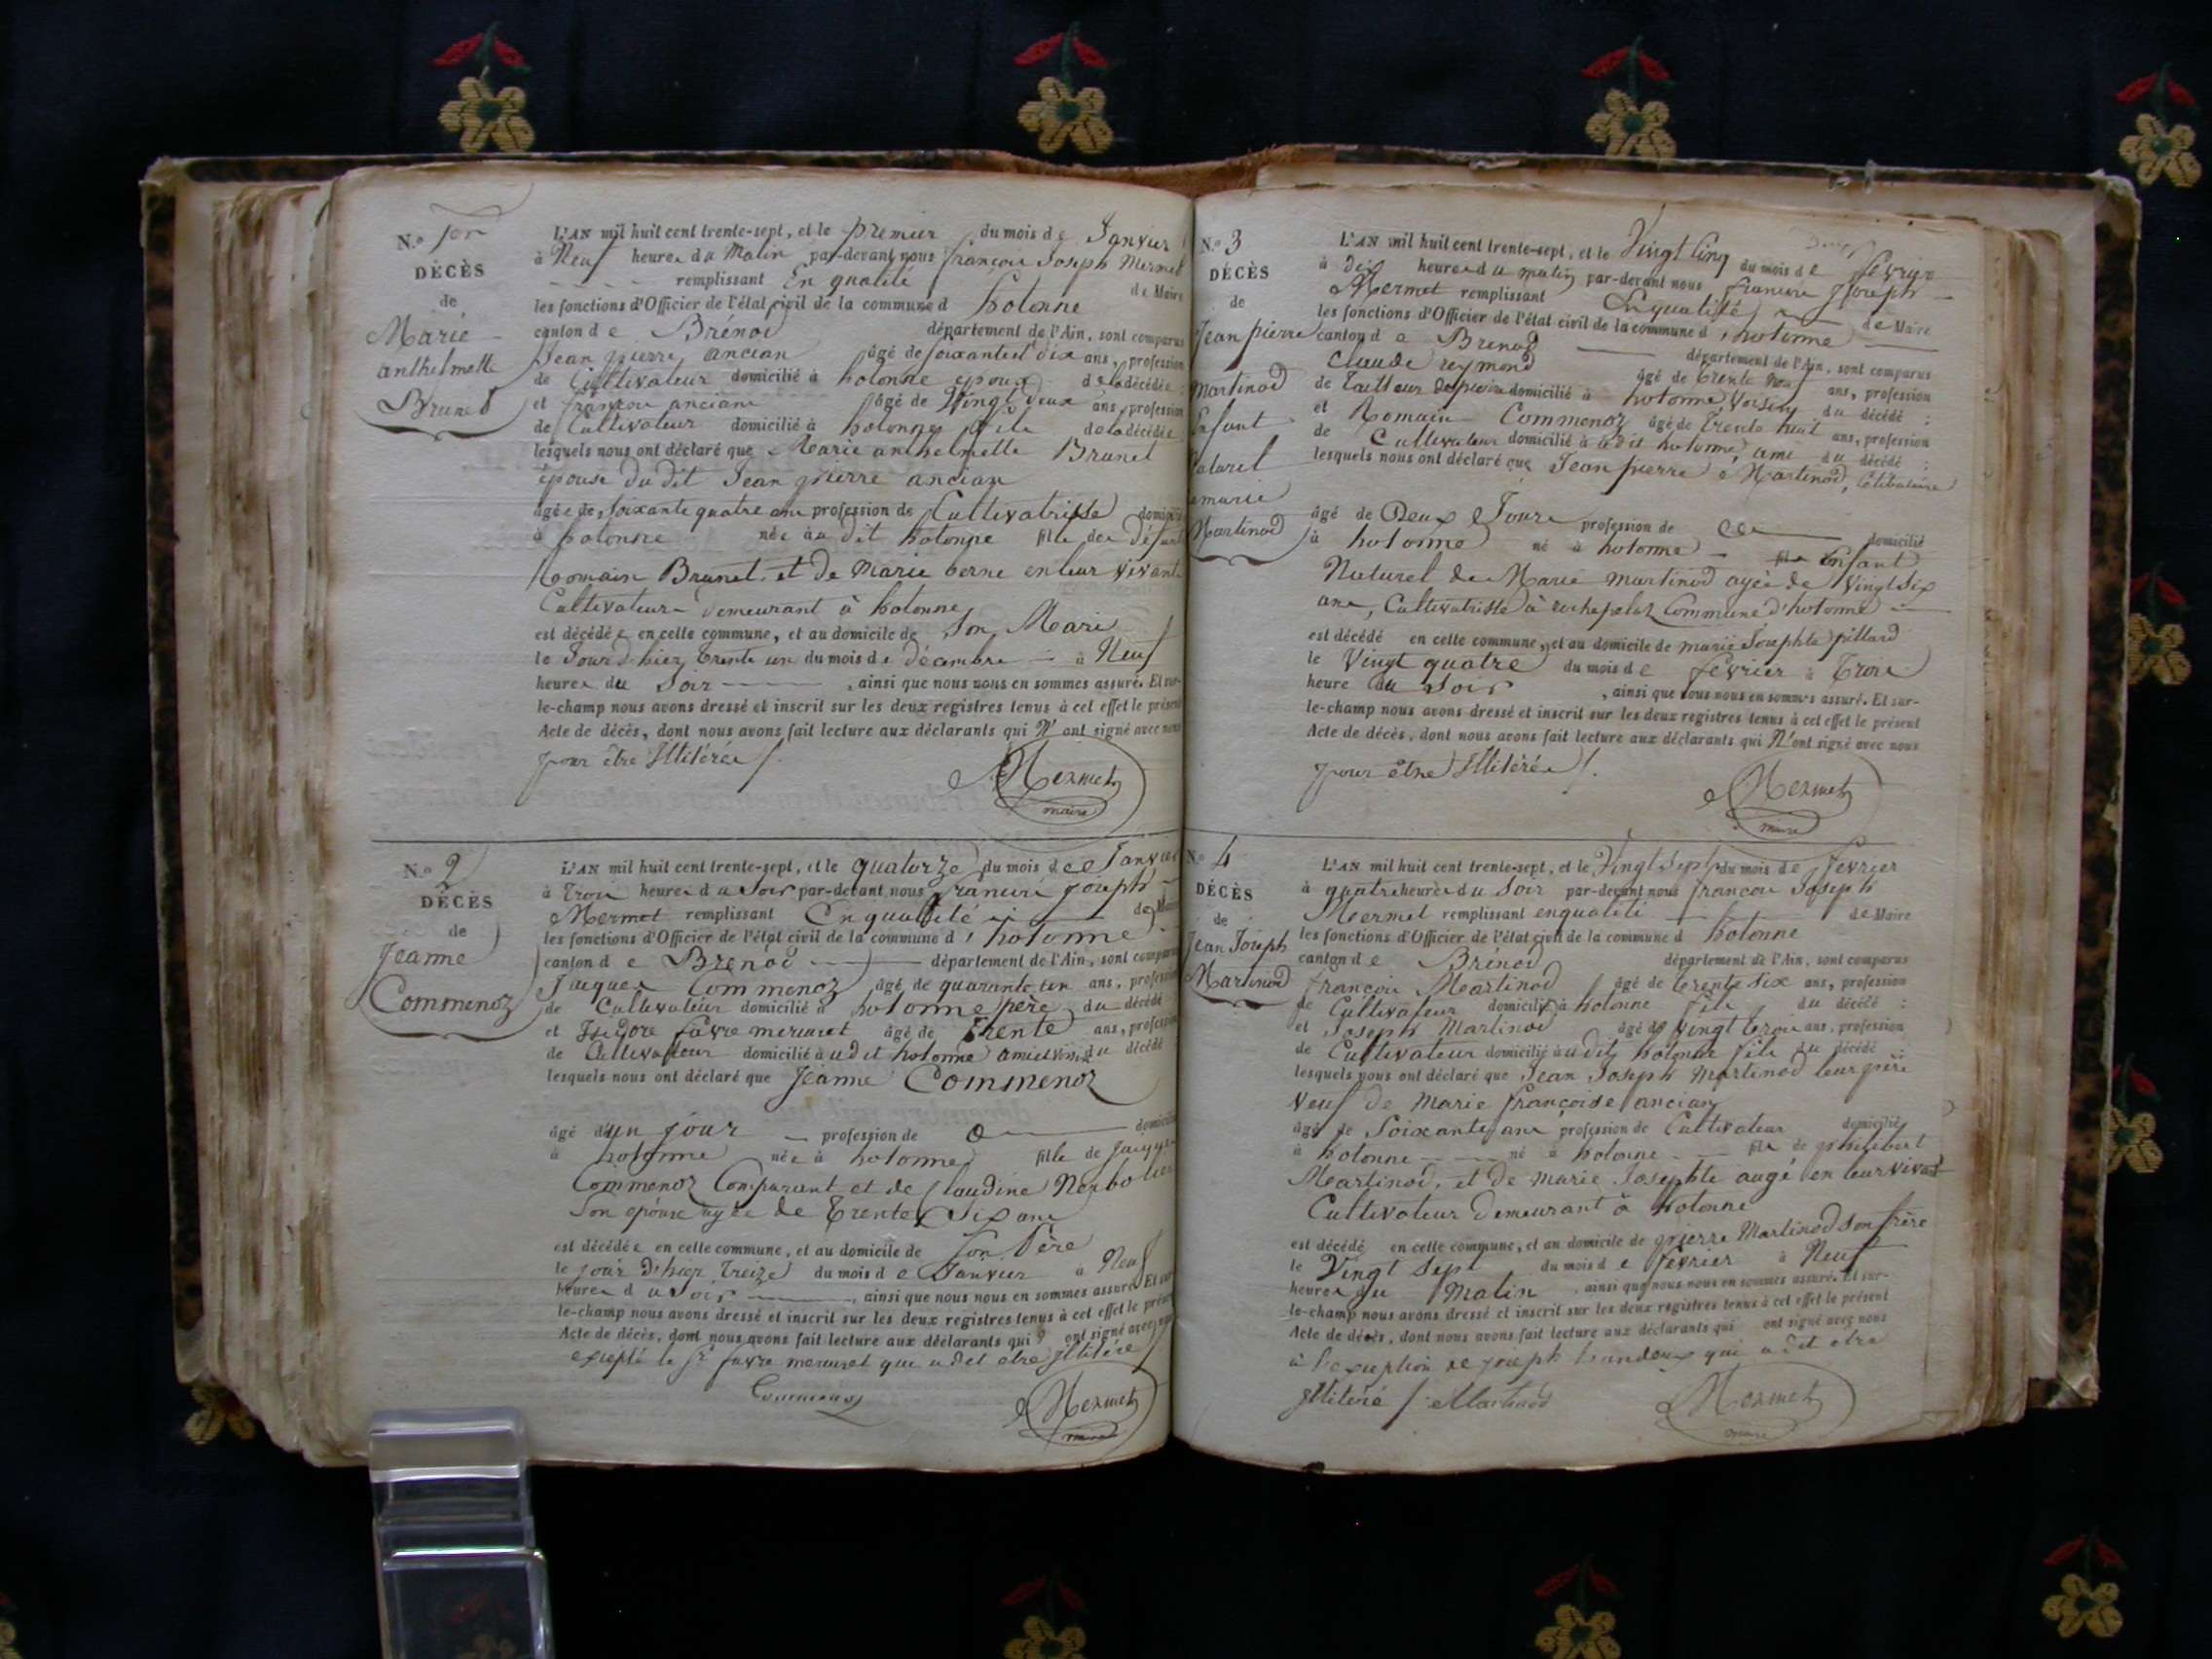 N.o 1er
DÉCÈS
de
Marie
anthelmette
Brunet
L'AN mil huit cent trente-sept, et le premier du mois de Janvier
à Neuf heures du Matin par-devant nous françois Joseph Mermet
remplissant En qualité de Maire
les fonctions d'Officier de l'état civil de la commune d hotonne
canton de Brénod département de l'Ain, sont comparus
Jean pierre ancian âgé de soixante et dix ans, profession
de Cultivateur domicilié à hotonne epoux de la décédée
et françois ancian âgé de Vingt deux ans, profession
de Cultivateur domicilié à hotonne fils de la décédée
lesquels nous ont déclaré que Marie anthelmette Brunet
épouse du dit Jean pierre ancian
âgée de soixante quatre ans profession de Cultivatrisse domicilié
à hotonne née au dit hotonne fille des défunt
Romain Brunet et de Marie berne en leur vivant
Cultivateurs demeurant à hotonne
est décédée en cette commune, et au domicile de son Mari
le Jour d'hier trente un du mois de décembre à Neuf
heures du Soir, ainsi que nous nous en sommes assuré. Et sur-
le-champ nous avons dressé et inscrit sur les deux registres tenus à cet effet le présent
Acte de décès, dont nous avons fait lecture aux déclarants qui N'ont signé avec nous
pour être Illitérés /.
Mermet
maire
N.o 2
DÉCÈS
de
Jeanne
Commenoz
L'AN mil huit cent trente-sept, et le quatorze du mois de Janvier
à trois heures du Soir par-devant nous francois joseph
Mermet remplissant En qualité de Maire
les fonctions d'Officier de l'état civil de la commune d'hotonne
canton de Brenod département de l'Ain, sont comparus
Jacques Commenoz âgé de quarante un ans, profession
de Cultivateur domicilié à hotonne père du décédé
et Isidore favre mermet âgé de Trente ans, profession
de Cultivateur domicilié à udit hotonne ami et voisin du décédé
lesquels nous ont déclaré que Jeanne Commenoz
âgé d'un jour profession de domicilié
à hotonne née à hotonne fille de Jacques
Commenoz Comparant et de Claudine
Son épouse agée de trente Six ans
est décédée en cette commune, et au domicile de son Père
le jour d'hier treize du mois de Janvier à Neuf
heures du Soir, ainsi que nous nous en sommes assuré. Et sur-
le-champ nous avons dressé et inscrit sur les deux registres tenus à cet effet le présent
Acte de décès, dont nous avons fait lecture aux déclarants qui ont signé avec nous
excepté le Sr favre mermet qui a dit etre illitéré
Commenoz
Mermet
maire
N.o 3
DÉCÈS
de
Jean pierre
Martinod
Enfant
Naturel
de marie
Martinod
L'AN mil huit cent trente-sept, et le Vingt Cinq du mois de fevrier
à dix heures du matin par-devant nous francois Joseph
Mermet remplissant En qualité de Maire
les fonctions d'Officier de l'état civil de la commune d'hotonne
canton de Brenod département de l'Ain, sont comparus
Claude reymond âgé de trente neuf ans, profession
de tailleur de pierre domicilié à hotonne Voisin du décédé :
et Romain Commenoz âgé de trente huit ans, profession
de Cultivateur domicilié à udit hotonne ami du décédé :
lesquels nous ont déclaré que Jean pierre Martinod, Célibataire
âgé de Deux Jours profession de domicilié
à hotonne né à hotonne fils Enfant
Naturel de Marie martinod agée de Vingt Six
ans, Cultivatrisse à Commune d'hotonne
est décédé en cette commune, et au domicile de marie Josephte pillard
le Vingt quatre du mois de fevrier à trois
heure du Soir, ainsi que nous nous en sommes assuré. Et sur-
le-champ nous avons dressé et inscrit sur les deux registres tenus à cet effet le présent
Acte de décès, dont nous avons fait lecture aux déclarants qui N'ont signé avec nous
pour être Illitérés /.
Mermet
maire
N.o 4
DÉCÈS
de
Jean Joseph
Martinod
L'AN mil huit cent trente-sept, et le Vingt Sept du mois de fevrier
à quatre heures du Soir par-devant nous francois Joseph
Mermet remplissant en qualité de Maire
les fonctions d'Officier de l'état civil de la commune d hotonne
canton de Brénod département de l'Ain, sont comparus
francois Martinod âgé de trente six ans, profession
de Cultivateur domicilié à hotonne fils du décédé :
et Joseph Martinod âgé de vingt trois ans, profession
de Cultivateur domicilié à udit hotonne fils du décédé :
lesquels nous ont déclaré que Jean Joseph Martinod leur père
veuf de Marie françoise ancian
âgé de Soixante ans profession de Cultivateur domicilié
à hotonne né à hotonne fils de philibert
Martinod, et de marie Josephte augé en leur vivant
Cultivateur demeurant à hotonne
est décédé en cette commune, et au domicile de pierre Martinod son frère
le Vingt Sept du mois de fevrier à Neuf
heures du Matin, ainsi que nous nous en sommes assuré. Et sur-
le-champ nous avons dressé et inscrit sur les deux registres tenus à cet effet le présent
Acte de décès, dont nous avons fait lecture aux déclarants qui ont signé avec nous
à l'exception de joseph qui a dit etre
Illitéré /. Martinod
Mermet
maire